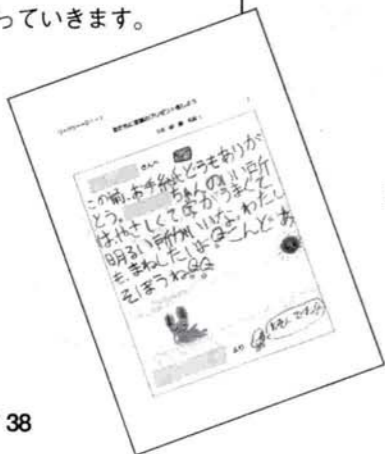 っていきます。
さんへ
この前、お手紙どうもありが
とう。ちゃんのいい所
は、やさしくて字がうまくて
明るい所がいいな。わたし
も、まねしたいよ。こんどあ
そぼうね
より
38